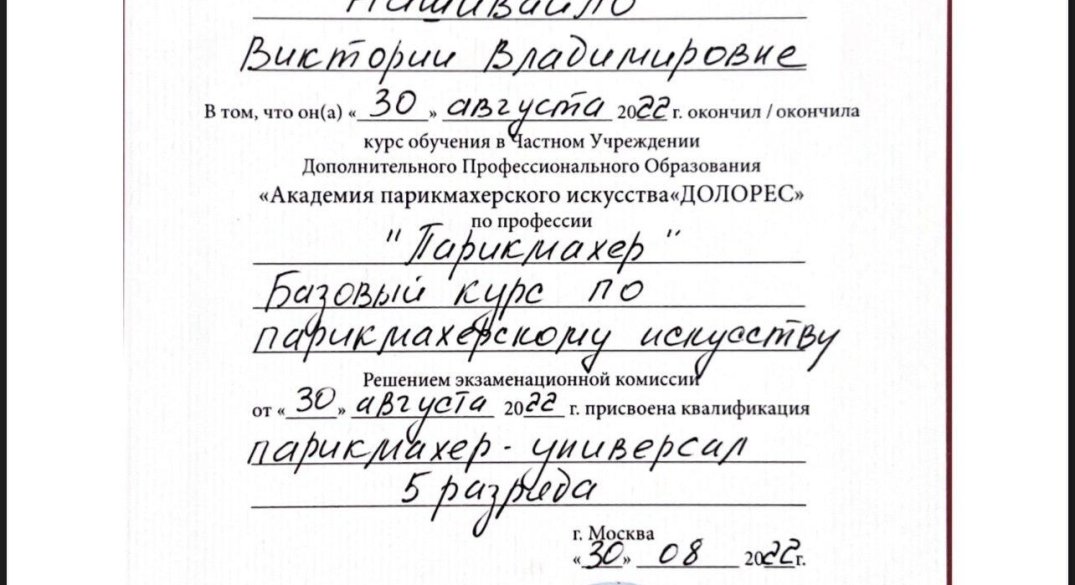 Нашивайло
Виктории Владимировне
В том, что он(а) «30» августа 2022 г. окончил / окончила
курс обучения в Частном Учреждении
Дополнительного Профессионального Образования
«Академия парикмахерского искусства«ДОЛОРЕС»
по профессии
"Парикмахер"
Базовый курс по
парикмахерскому искусству
Решением экзаменационной комиссии
от «30» августа 2022 г. присвоена квалификация
парикмахер - универсал
5 разряда
г. Москва
«30» 08 2022г.